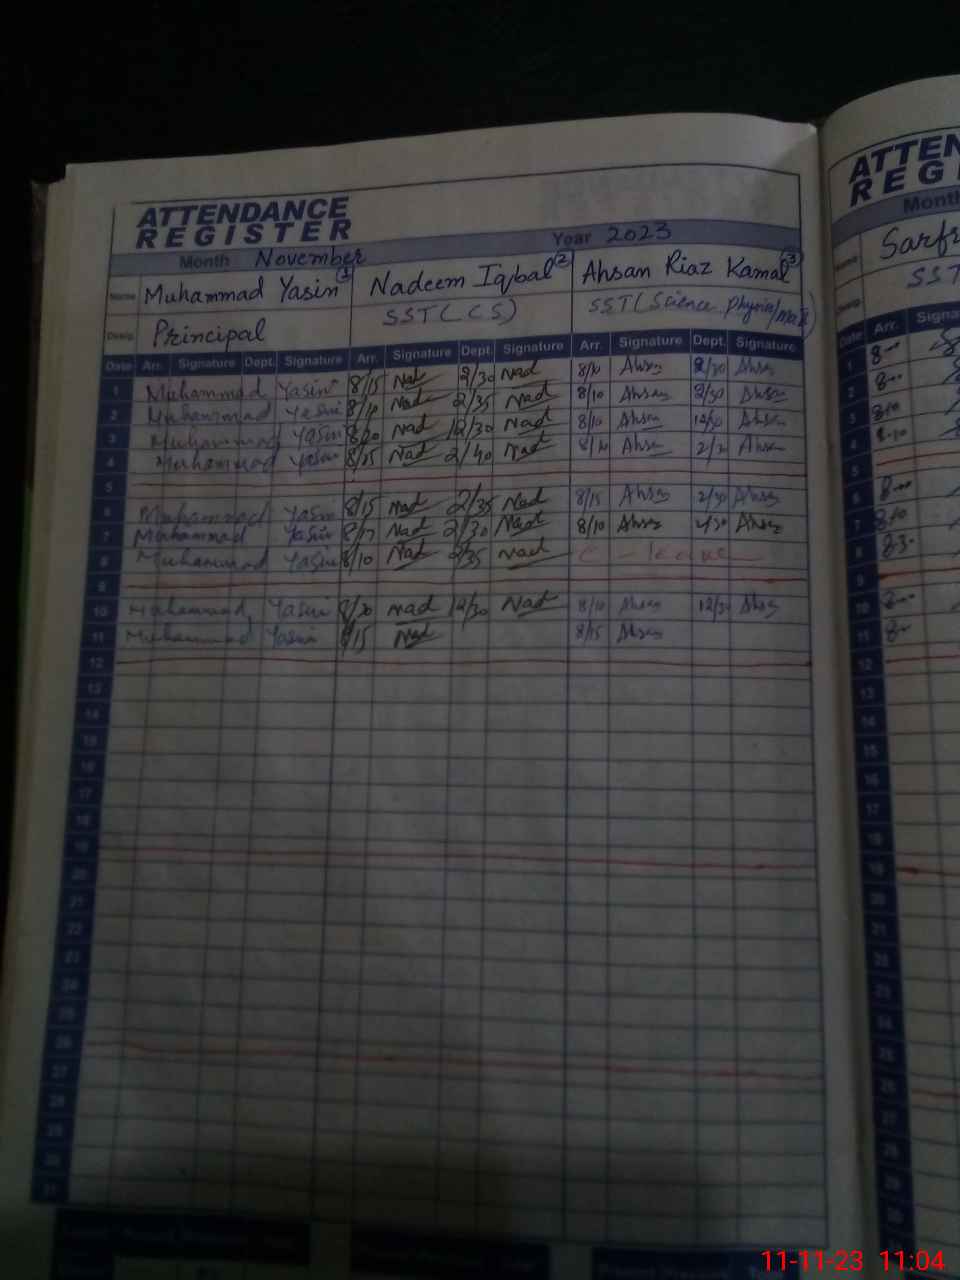 ATTENDANCE
REGISTER
Month November Year 2023
Name Muhammad Yasin 1 Nadeem Iqbal 2 Ahsan Riaz Kamal 3
Desig. Principal SST (CS) SST (Science
Date Arr. Signature Dept. Signature Arr. Signature Dept. Signature Arr. Signature Dept. Signature
1 Muhammad Yasin 8/15 Nad 2/30 Nad 8/10 Ahsan 2/30 Ahsan
2 Muhammad Yasin 8/10 Nad 2/35 Nad 8/10 Ahsan 2/30 Ahsan
3 Muhammad Yasin 8/20 Nad 12/30 Nad 8/10 Ahsan 12/30 Ahsan
4 Muhammad Yasin 8/15 Nad 2/40 Nad Ahsan Ahsan
5
6 Muhammad Yasin 8/15 Nad 2/35 Nad 8/15 Ahsan 2/30 Ahsan
7 Muhammad Yasin 8/17 Nad 2/30 Nad 8/10 Ahsan 2/30 Ahsan
8 Muhammad Yasin 8/10 Nad 2/35 Nad C - leave
9
10 Muhammad Yasin 8/20 Nad 12/30 Nad 8/10 Ahsan 12/30 Ahsan
11 Muhammad Yasin 8/15 Nad 8/15 Ahsan
12
13
14
15
16
17
18
19
20
21
22
23
24
25
26
27
28
29
30
31
ATTEN
REGI
Month
Sarfr
SST
Arr. Signa
1 8-00
2 8-00
3 8-10
4 8-10
5
6 8-00
7 8-10
8 8-30
9
10 8-00
11 8-
12
13
14
15
16
17
18
19
20
21
22
23
24
25
26
27
28
29
30
11-11-23 11:04